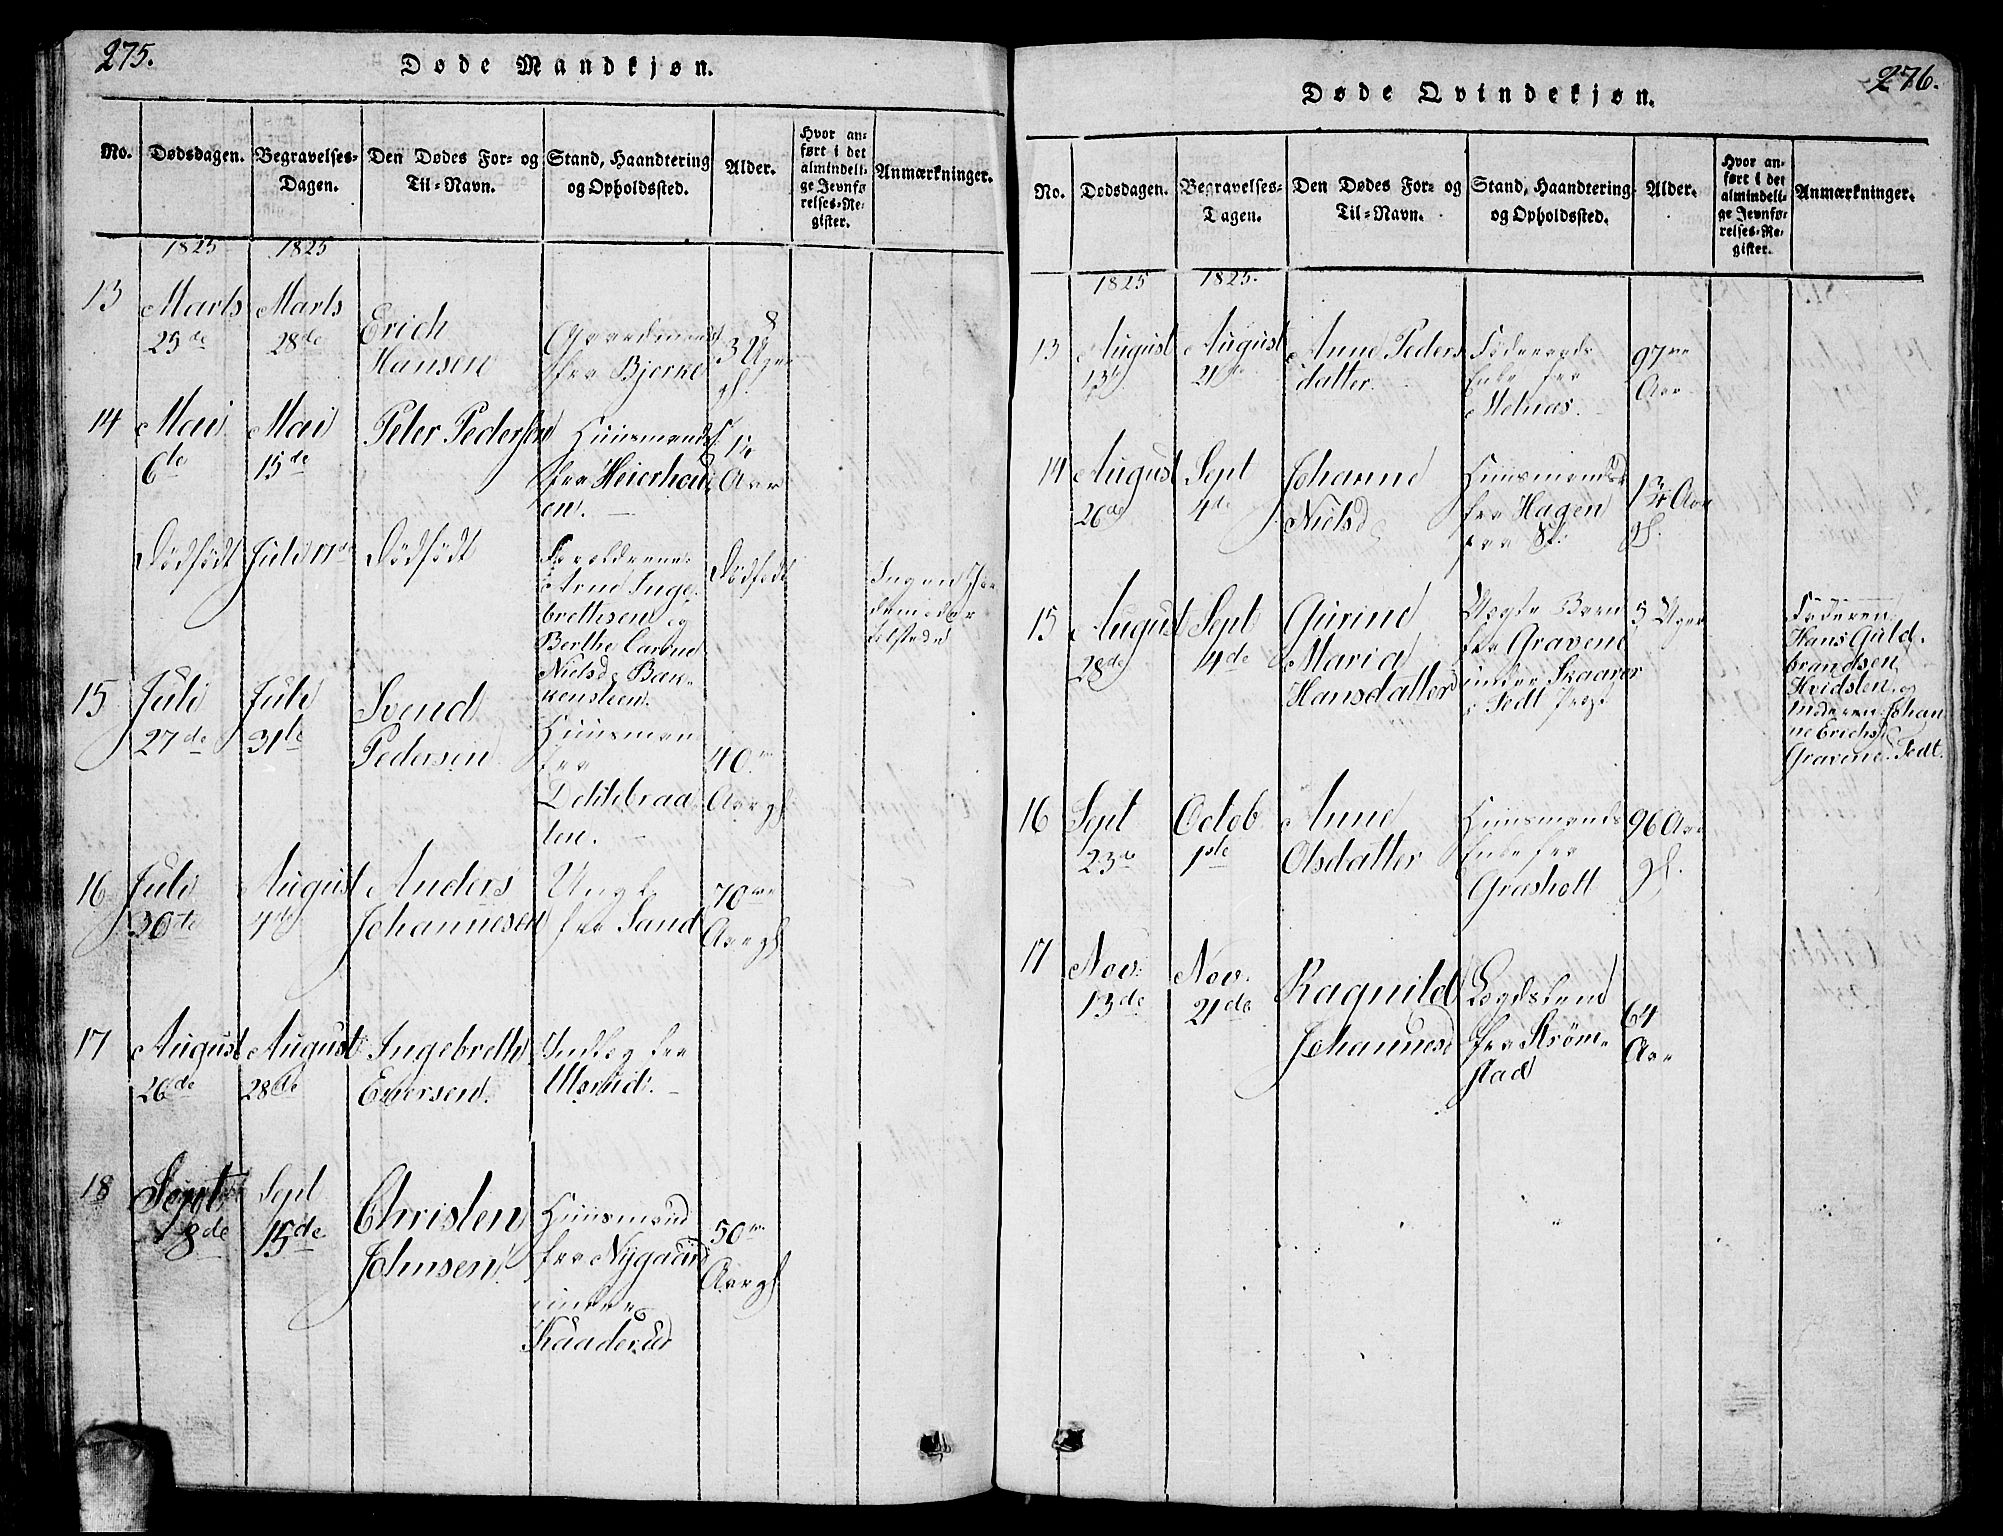 275.
Døde Mandkjøn.
No.
Dødsdagen.
Begravelses-
Dagen.
Den Dødes For- og
Til-Navn.
Stand, Haandtering
og Opholdssted.
Alder.
Hvor an-
ført i det
almindeli-
ge Jevnfø
relses-Re-
gister.
Anmærkninger.
1825
1825
13
Marts
25de
Marts
28de
Erich
Hansen
fra Bjerke
3 Uger
14
Mai
6te
Mai
15de
Peter Pedersen
Huusmands
fra Heierhou
en.
Aar
Dödfödt
Juli 17de
Dödfödt
Forældrene
Arne Inge-
brethsen og
Berthe Carine
Nielsd. Bak-
kensteen.
Dödfödt
Ingen
15
Juli
27de
Juli
31te
Svend
Pedersen
Huusmand
fra
ten.
40
Aar gl.
16
Juli
30te
August
4de
Anders
Johannesen
Ungk.
fra Sand
70
Aar gl.
17
August
26de
August
28de
Ingebreth
Eversen
fra
Ulsrud.
18
Sept
8de
Sept
15de
Christen
Johnsen
Huusmand
fra Nygaard
under
Kaaderud
50
Aar gl.
276.
Døde Qvindekjøn.
No.
Dødsdagen.
Begravelses-
Dagen.
Den Dødes For- og
Til-Navn.
Stand, Haandtering
og Opholdssted.
Alder.
Hvor an-
ført i det
almindeli-
ge Jevnfø-
relses-Re-
gister.
Anmærkninger.
1825
1825.
13
August
13
August
21
Anne Peders
datter.
Föderaads
Enke fra
Mehias.
97
Aar
14
August
26de
Sept
4de
Johanne
Nielsd
Huusmands
fra Hagen
Aar
gl.
15
August
28de
Sept
4de
Gurine
Maria
Hansdatter
Uægte Barn
fra Gravene
under Skaarer
i Fedt
5 Uger
Faderen
Hans Guld-
brandsen
Hvidsten og
Moderen Johan
ne Erichsd
Gravene Fedt.
16
Sept
23de
Octob
1ste
Anne
Olsdatter
Huusmands
Enke fra
Grasholt
96 Aar
gl.
17
Nov.
13de
Nov.
21de
Ragnild
Johannesd
Lægdslem
fra Kröm-
stad
64
Aar